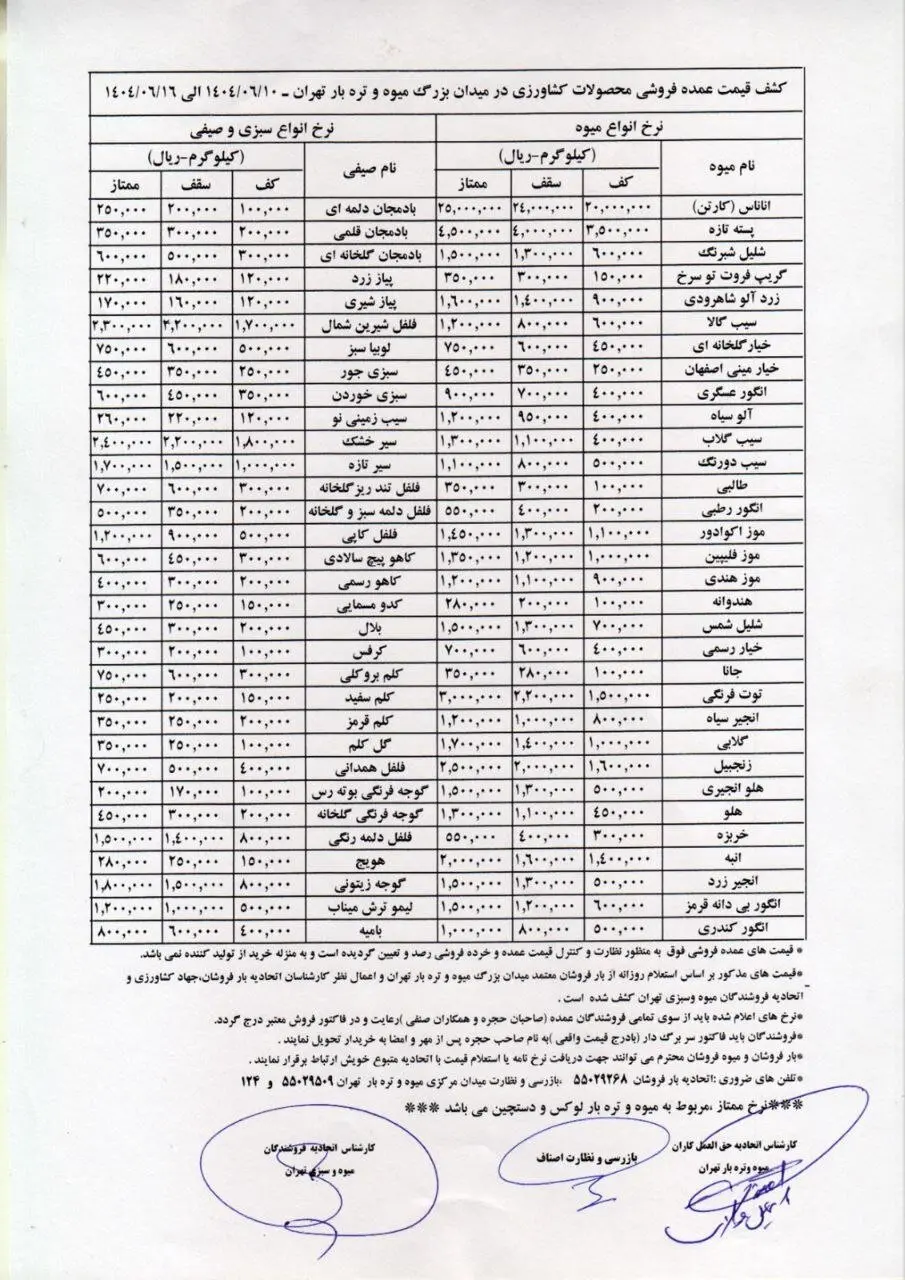 کشف قیمت عمده فروشی محصولات کشاورزی در میدان بزرگ میوه و تره بار تهران ـ ۱۴۰۴/۰۶/۱۰ الی ۱۴۰۴/۰۶/۱۶
نرخ انواع میوه نرخ انواع سبزی و صیفی
نام میوه (کیلوگرم-ریال) نام صیفی (کیلوگرم-ریال)
کف سقف ممتاز کف سقف ممتاز
اناناس (کارتن) ۲۰,۰۰۰,۰۰۰ ۲۴,۰۰۰,۰۰۰ ۲۵,۰۰۰,۰۰۰ بادمجان دلمه ای ۱۰۰,۰۰۰ ۲۰۰,۰۰۰ ۲۵۰,۰۰۰
پسته تازه ۳,۵۰۰,۰۰۰ ۴,۰۰۰,۰۰۰ ۴,۵۰۰,۰۰۰ بادمجان قلمی ۲۰۰,۰۰۰ ۳۰۰,۰۰۰ ۳۵۰,۰۰۰
شلیل شبرنگ ۶۰۰,۰۰۰ ۱,۳۰۰,۰۰۰ ۱,۵۰۰,۰۰۰ بادمجان گلخانه ای ۳۰۰,۰۰۰ ۵۰۰,۰۰۰ ۶۰۰,۰۰۰
گریپ فروت تو سرخ ۱۵۰,۰۰۰ ۳۰۰,۰۰۰ ۳۵۰,۰۰۰ پیاز زرد ۱۲۰,۰۰۰ ۱۸۰,۰۰۰ ۲۲۰,۰۰۰
زرد آلو شاهرودی ۹۰۰,۰۰۰ ۱,۴۰۰,۰۰۰ ۱,۶۰۰,۰۰۰ پیاز شیری ۱۲۰,۰۰۰ ۱۶۰,۰۰۰ ۱۷۰,۰۰۰
سیب گالا ۶۰۰,۰۰۰ ۸۰۰,۰۰۰ ۱,۲۰۰,۰۰۰ فلفل شیرین شمال ۱,۷۰۰,۰۰۰ ۲,۲۰۰,۰۰۰ ۲,۳۰۰,۰۰۰
خیار گلخانه ای ۴۵۰,۰۰۰ ۶۰۰,۰۰۰ ۷۵۰,۰۰۰ لوبیا سبز ۵۰۰,۰۰۰ ۶۰۰,۰۰۰ ۷۵۰,۰۰۰
خیار مینی اصفهان ۲۵۰,۰۰۰ ۳۵۰,۰۰۰ ۴۵۰,۰۰۰ سبزی جور ۲۵۰,۰۰۰ ۳۵۰,۰۰۰ ۴۵۰,۰۰۰
انگور عسگری ۴۰۰,۰۰۰ ۷۰۰,۰۰۰ ۹۰۰,۰۰۰ سبزی خوردن ۳۵۰,۰۰۰ ۴۵۰,۰۰۰ ۶۰۰,۰۰۰
آلو سیاه ۴۰۰,۰۰۰ ۹۵۰,۰۰۰ ۱,۲۰۰,۰۰۰ سیب زمینی نو ۱۲۰,۰۰۰ ۲۲۰,۰۰۰ ۲۶۰,۰۰۰
سیب گلاب ۴۰۰,۰۰۰ ۱,۱۰۰,۰۰۰ ۱,۳۰۰,۰۰۰ سیر خشک ۱,۸۰۰,۰۰۰ ۲,۲۰۰,۰۰۰ ۲,۴۰۰,۰۰۰
سیب دورنگ ۵۰۰,۰۰۰ ۸۰۰,۰۰۰ ۱,۱۰۰,۰۰۰ سیر تازه ۱,۰۰۰,۰۰۰ ۱,۵۰۰,۰۰۰ ۱,۷۰۰,۰۰۰
طالبی ۱۰۰,۰۰۰ ۳۰۰,۰۰۰ ۳۵۰,۰۰۰ فلفل تند ریز گلخانه ۳۰۰,۰۰۰ ۶۰۰,۰۰۰ ۷۰۰,۰۰۰
انگور رطبی ۲۰۰,۰۰۰ ۴۰۰,۰۰۰ ۵۵۰,۰۰۰ فلفل دلمه سبز و گلخانه ۲۰۰,۰۰۰ ۳۵۰,۰۰۰ ۵۰۰,۰۰۰
موز اکوادور ۱,۱۰۰,۰۰۰ ۱,۳۰۰,۰۰۰ ۱,۴۵۰,۰۰۰ فلفل کاپی ۵۰۰,۰۰۰ ۹۰۰,۰۰۰ ۱,۲۰۰,۰۰۰
موز فلیپین ۱,۰۰۰,۰۰۰ ۱,۲۰۰,۰۰۰ ۱,۳۵۰,۰۰۰ کاهو پیچ سالادی ۳۰۰,۰۰۰ ۴۵۰,۰۰۰ ۶۰۰,۰۰۰
موز هندی ۹۰۰,۰۰۰ ۱,۱۰۰,۰۰۰ ۱,۲۰۰,۰۰۰ کاهو رسمی ۲۰۰,۰۰۰ ۳۰۰,۰۰۰ ۴۰۰,۰۰۰
هندوانه ۱۰۰,۰۰۰ ۲۰۰,۰۰۰ ۲۸۰,۰۰۰ کدو مسمایی ۱۵۰,۰۰۰ ۲۵۰,۰۰۰ ۳۰۰,۰۰۰
شلیل شمس ۷۰۰,۰۰۰ ۱,۳۰۰,۰۰۰ ۱,۵۰۰,۰۰۰ بلال ۲۰۰,۰۰۰ ۳۰۰,۰۰۰ ۴۵۰,۰۰۰
خیار رسمی ۴۰۰,۰۰۰ ۶۰۰,۰۰۰ ۷۰۰,۰۰۰ کرفس ۱۰۰,۰۰۰ ۲۰۰,۰۰۰ ۳۰۰,۰۰۰
جانا ۱۰۰,۰۰۰ ۲۸۰,۰۰۰ ۳۵۰,۰۰۰ کلم بروکلی ۳۰۰,۰۰۰ ۶۰۰,۰۰۰ ۷۵۰,۰۰۰
توت فرنگی ۱,۵۰۰,۰۰۰ ۲,۲۰۰,۰۰۰ ۳,۰۰۰,۰۰۰ کلم سفید ۱۵۰,۰۰۰ ۲۰۰,۰۰۰ ۲۵۰,۰۰۰
انجیر سیاه ۸۰۰,۰۰۰ ۱,۰۰۰,۰۰۰ ۱,۲۰۰,۰۰۰ کلم قرمز ۲۰۰,۰۰۰ ۲۵۰,۰۰۰ ۳۵۰,۰۰۰
گلابی ۱,۰۰۰,۰۰۰ ۱,۴۰۰,۰۰۰ ۱,۷۰۰,۰۰۰ گل کلم ۱۰۰,۰۰۰ ۲۵۰,۰۰۰ ۳۵۰,۰۰۰
زنجبیل ۱,۶۰۰,۰۰۰ ۲,۰۰۰,۰۰۰ ۲,۵۰۰,۰۰۰ فلفل همدانی ۴۰۰,۰۰۰ ۵۰۰,۰۰۰ ۷۰۰,۰۰۰
هلو انجیری ۵۰۰,۰۰۰ ۱,۳۰۰,۰۰۰ ۱,۵۰۰,۰۰۰ گوجه فرنگی بوته رس ۱۰۰,۰۰۰ ۱۷۰,۰۰۰ ۲۰۰,۰۰۰
هلو ۴۵۰,۰۰۰ ۱,۱۰۰,۰۰۰ ۱,۳۰۰,۰۰۰ گوجه فرنگی گلخانه ۲۰۰,۰۰۰ ۳۰۰,۰۰۰ ۴۵۰,۰۰۰
خربزه ۳۰۰,۰۰۰ ۴۰۰,۰۰۰ ۵۵۰,۰۰۰ فلفل دلمه رنگی ۸۰۰,۰۰۰ ۱,۴۰۰,۰۰۰ ۱,۵۰۰,۰۰۰
انبه ۱,۴۰۰,۰۰۰ ۱,۶۰۰,۰۰۰ ۲,۰۰۰,۰۰۰ هویج ۱۵۰,۰۰۰ ۲۵۰,۰۰۰ ۲۸۰,۰۰۰
انجیر زرد ۵۰۰,۰۰۰ ۱,۳۰۰,۰۰۰ ۱,۵۰۰,۰۰۰ گوجه زیتونی ۸۰۰,۰۰۰ ۱,۵۰۰,۰۰۰ ۱,۸۰۰,۰۰۰
انگور بی دانه قرمز ۶۰۰,۰۰۰ ۱,۲۰۰,۰۰۰ ۱,۵۰۰,۰۰۰ لیمو ترش میناب ۵۰۰,۰۰۰ ۱,۰۰۰,۰۰۰ ۱,۲۰۰,۰۰۰
انگور کندری ۵۰۰,۰۰۰ ۸۰۰,۰۰۰ ۱,۰۰۰,۰۰۰ بامیه ۴۰۰,۰۰۰ ۶۰۰,۰۰۰ ۸۰۰,۰۰۰
* قیمت های عمده فروشی فوق به منظور نظارت و کنترل قیمت عمده و خرده فروشی رصد و تعیین گردیده است و به منزله خرید از تولید کننده نمی باشد.
*قیمت های مذکور بر اساس استعلام روزانه از بار فروشان معتمد میدان بزرگ میوه و تره بار تهران و اعمال نظر کارشناسان اتحادیه بار فروشان،جهاد کشاورزی و
اتحادیه فروشندگان میوه وسبزی تهران کشف شده است .
*نرخ های اعلام شده باید از سوی تمامی فروشندگان عمده (صاحبان حجره و همکاران صنفی )رعایت و در فاکتور فروش معتبر درج گردد.
*فروشندگان باید فاکتور سر برگ دار (بادرج قیمت واقعی )به نام صاحب حجره پس از مهر و امضا به خریدار تحویل نمایند .
*بار فروشان و میوه فروشان محترم می توانند جهت دریافت نرخ نامه یا استعلام قیمت با اتحادیه متبوع خویش ارتباط برقرار نمایند .
*تلفن های ضروری :اتحادیه بار فروشان ۵۵۰۲۹۲۶۸ ،بازرسی و نظارت میدان مرکزی میوه و تره بار تهران ۵۵۰۲۹۵۰۹ و ۱۲۴
***نرخ ممتاز ،مربوط به میوه و تره بار لوکس و دستچین می باشد ***
کارشناس اتحادیه حق العمل کاران بازرسی و نظارت اصناف کارشناس اتحادیه فروشندگان
میوه وتره بار تهران میوه و سبزی تهران